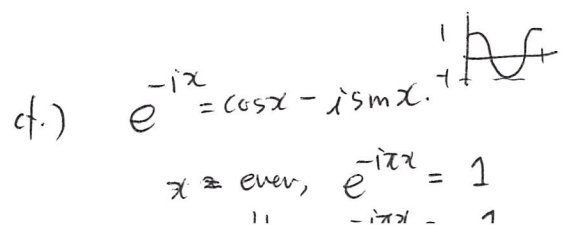 1
-1
cf.) e^{-ix} = cosx - i sinx.
x = even, e^{-iπx} = 1